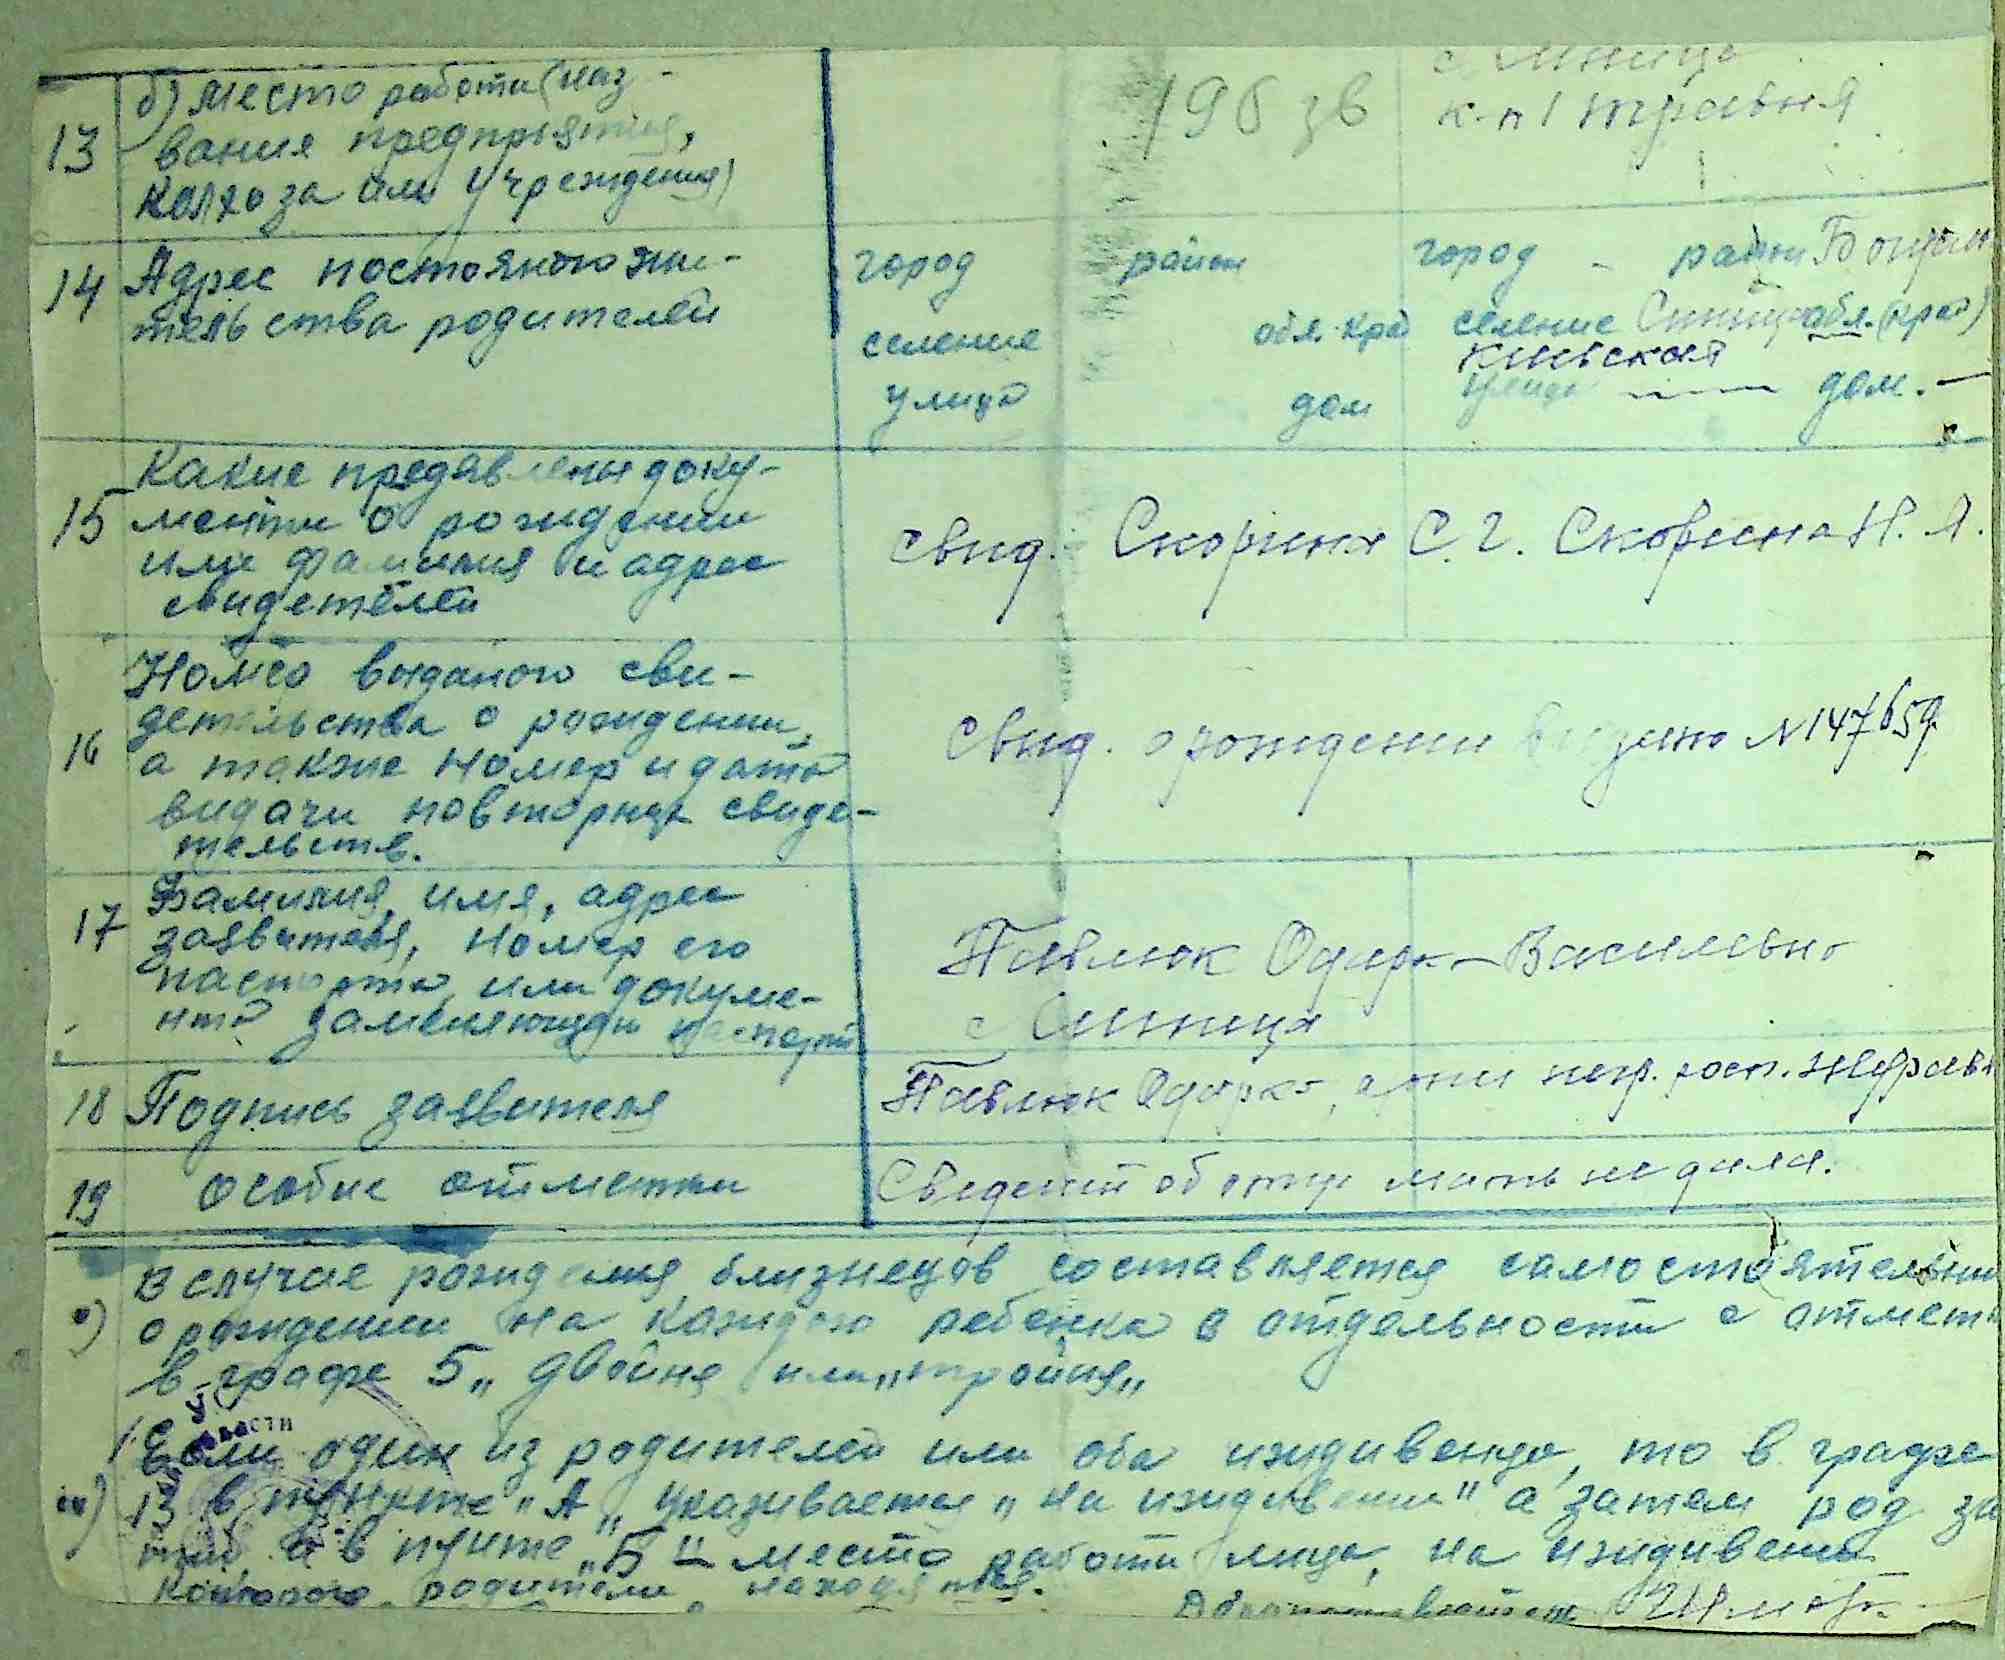 с. Синица
13 б) место работи (наз-
вания предприятия,
колхоза или учреждения)
196 зв
к-п 1 травня
14 Адрес постояного жи-
тельства родителей
город район
селение обл. край
улица дом
город - район
селение Синица обл. (край)
Киевская
улица — дом. —
15 Какие предявлены доку-
менти о рождении
или фамилия и адрес
свидетелей
свид. Скорина С. Г. Скорина Н. Я.
16 Номео выданого сви-
детельства о рождении,
а также номер и дата
видачи повторных свиде-
тельств.
Свид. о рождении видано № 147659
17 Фамилия, имя, адрес
заявителя, номер его
паспорта или докуме-
нта заменяющего паспорт
Павлюк Одарка Васильевна
с Синица
18 Подпись заявителя
Павлюк Одарка, росп.
19 Особие отметки
Сведений об отце мать не дала.
в случае рождения близнецов составляется самостоятельни
о рождении на каждого ребенка в отдельности с отмет
в графе 5 „ двойня или „ тройня „
области
Если один из родителей или оба иждивенцы, то в графе
13 в пункте „А„ указивается „на иждивении" а затем род за
тий а в пункте „Б" место работи лица, на иждивении
которого родители находятся.